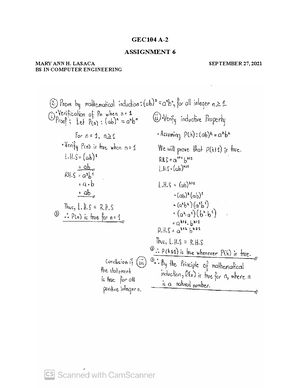 GEC104 A-2
ASSIGNMENT 6
MARY ANN H. LASACA
BS IN COMPUTER ENGINEERING
SEPTEMBER 27, 2021
② Prove by mathematical induction: (ab)ⁿ = aⁿbⁿ, for all integer n ≥ 1.
• Verification of Pn when n = 1
Proof: Let P(n): (ab)ⁿ = aⁿbⁿ
For n = 1, n ≥ 1
• Verify P(n) is true when n = 1
L.H.S = (ab)¹
= ab
R.H.S = a¹b¹
= a·b
= ab
Thus, L.H.S = R.H.S
∴ P(n) is true for n = 1
ⓘⓘ Verify Inductive Property
• Assuming P(k): (ab)ᵏ = aᵏbᵏ
We will prove that P(k+1) is true.
L.H.S = (ab)ᵏ⁺¹
= (ab)ᵏ(ab)¹
= (aᵏbᵏ)(a¹b¹)
= (aᵏ·a¹)(bᵏ·b¹)
= aᵏ⁺¹·bᵏ⁺¹
R.H.S = aᵏ⁺¹bᵏ⁺¹
Thus, L.H.S = R.H.S
is true whenever P(k) is true.
Conclusion:
the statement
is true for all
positive integer n.
∴ By the Principle of mathematical
induction, P(n) is true for n, where n
is a natural number.
CS Scanned with CamScanner